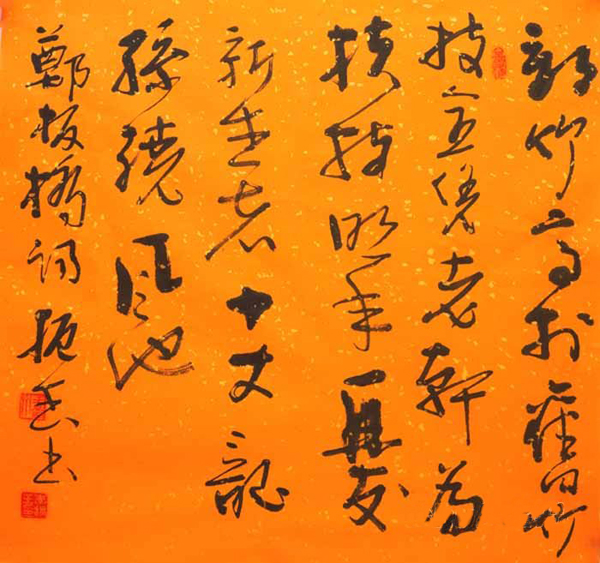 新竹高於舊竹
枝全凴老幹為
扶持明年再有
新生者十丈龍
孫繞鳳池
鄭板橋詩 書